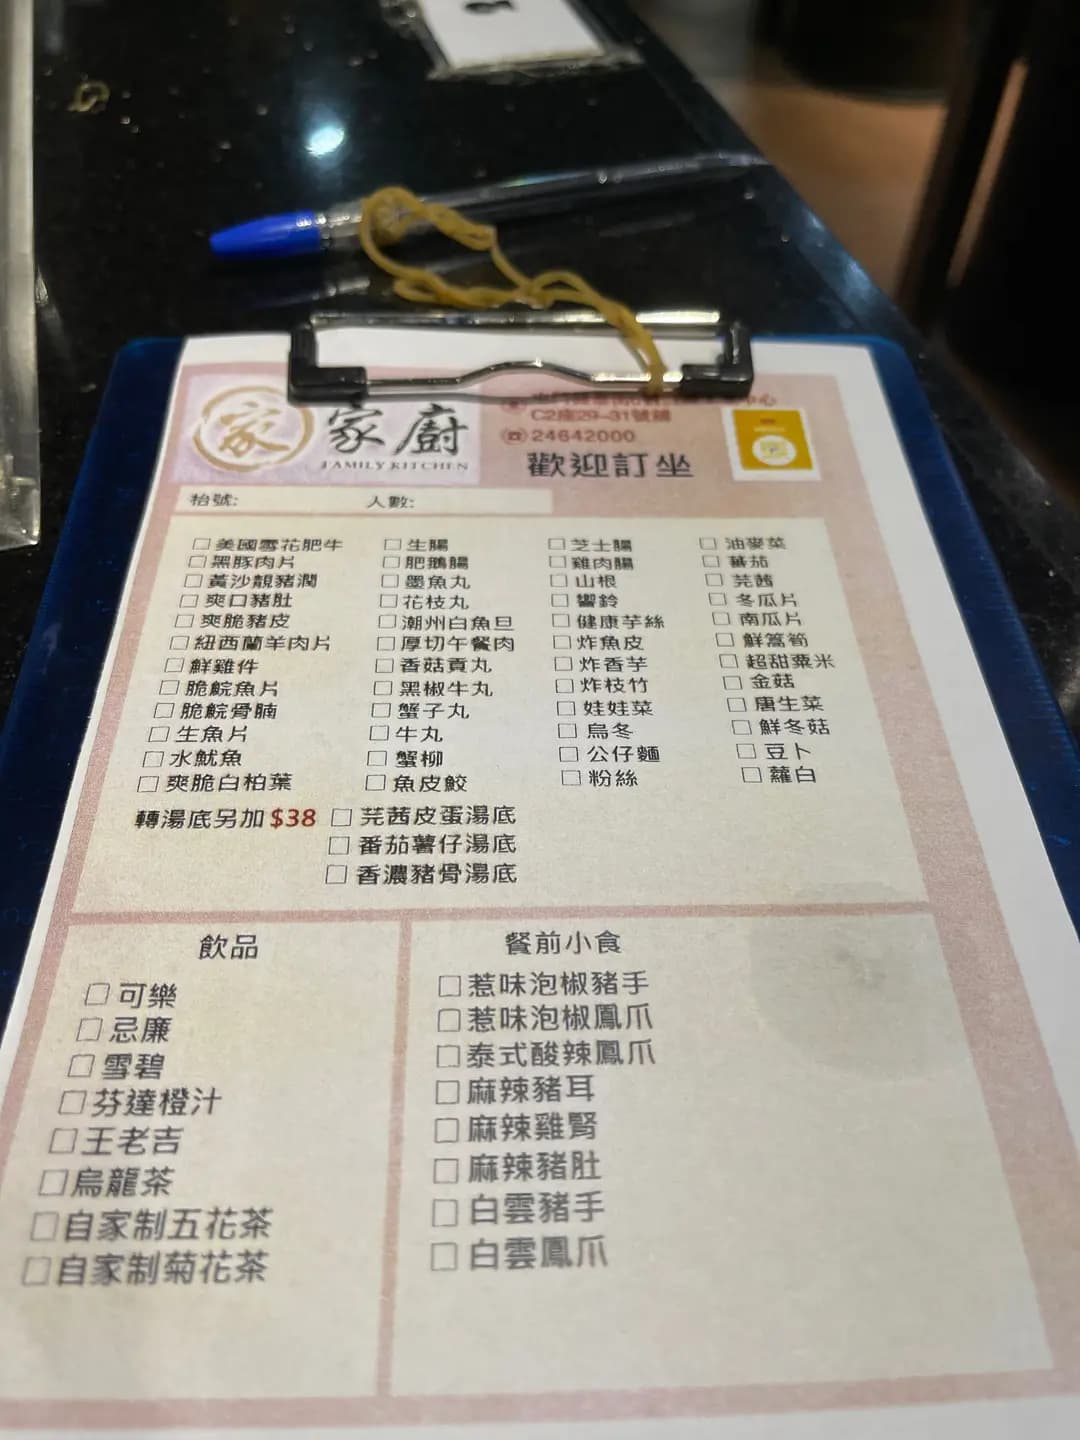 家 家廚
FAMILY KITCHEN
C2座29-31號舖
24642000
歡迎訂坐
枱號: 人數:
□美國雪花肥牛 □生腸 □芝士腸 □油麥菜
□黑豚肉片 □肥鵝腸 □雞肉腸 □蕃茄
□黃沙靚豬潤 □墨魚丸 □山根 □芫茜
□爽口豬肚 □花枝丸 □響鈴 □冬瓜片
□爽脆豬皮 □潮州白魚旦 □健康芋絲 □南瓜片
□紐西蘭羊肉片 □厚切午餐肉 □炸魚皮 □鮮萵筍
□鮮雞件 □香菇貢丸 □炸香芋 □超甜粟米
□脆鯇魚片 □黑椒牛丸 □炸枝竹 □金菇
□脆鯇骨腩 □蟹子丸 □娃娃菜 □唐生菜
□生魚片 □牛丸 □烏冬 □鮮冬菇
□水魷魚 □蟹柳 □公仔麵 □豆卜
□爽脆白柏葉 □魚皮餃 □粉絲 □蘿白
轉湯底另加$38 □芫茜皮蛋湯底
□番茄薯仔湯底
□香濃豬骨湯底
飲品
□可樂
□忌廉
□雪碧
□芬達橙汁
□王老吉
□烏龍茶
□自家制五花茶
□自家制菊花茶
餐前小食
□惹味泡椒豬手
□惹味泡椒鳳爪
□泰式酸辣鳳爪
□麻辣豬耳
□麻辣雞腎
□麻辣豬肚
□白雲豬手
□白雲鳳爪